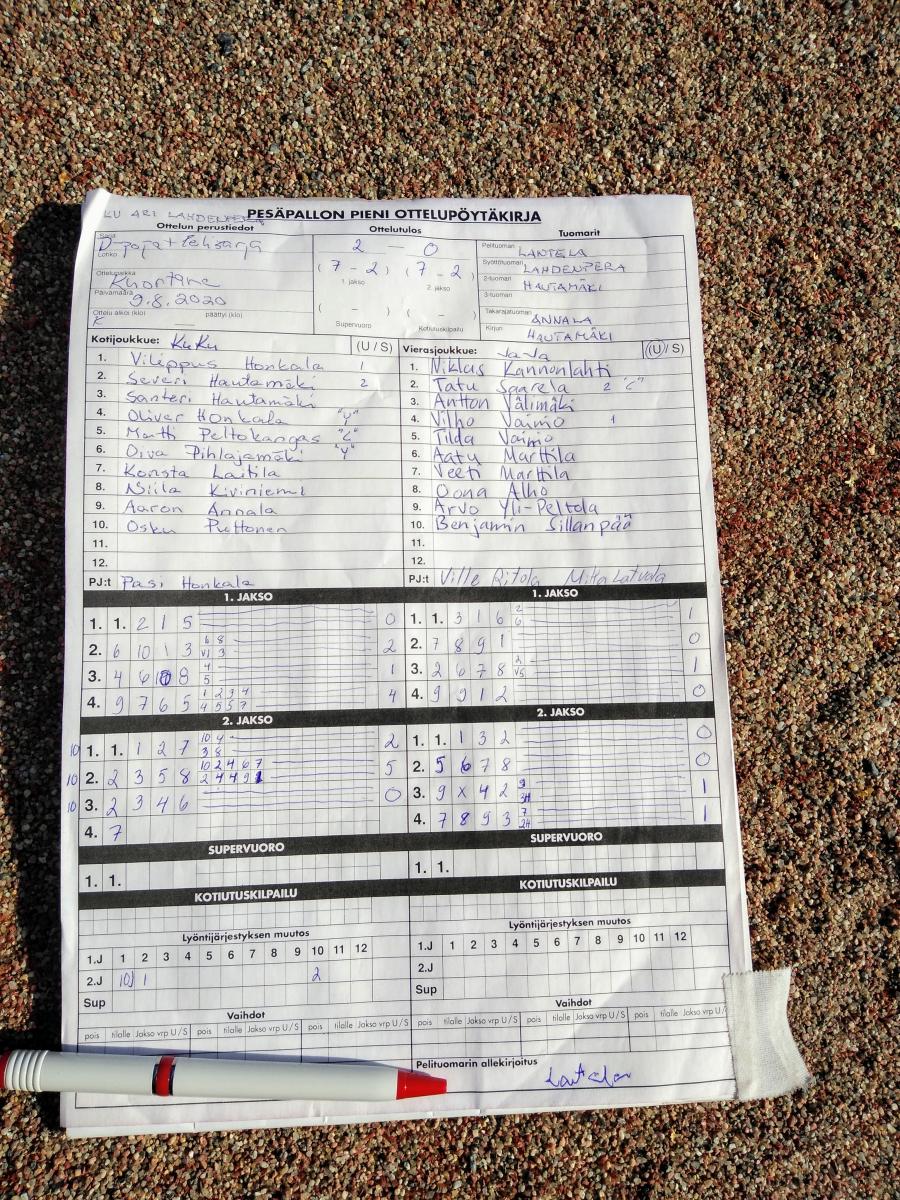 KU ARI LAHDENPERÄ
PESÄPALLON PIENI OTTELUPÖYTÄKIRJA
Ottelun perustiedot Ottelutulos Tuomarit
Sarja D-pojat lehsarja
Lohko
Ottelupaikka Kuortane
Päivämäärä 9.8.2020
Ottelu alkoi (klo) päättyi (klo)
K
2 — 0
(7 - 2) (7 - 2)
1. jakso 2. jakso
( - ) ( - )
Supervuoro Kotiutuskilpailu
Pelituomari LANTELA
Syöttötuomari LAHDENPERÄ
2-tuomari HAUTAMÄKI
3-tuomari
Takarajatuomari ANNALA
Kirjuri HAUTAMÄKI
Kotijoukkue: KuKu (U / S)
1. Vilippus Honkala 1
2. Severi Hautamäki 2
3. Santeri Hautamäki
4. Oliver Honkala
5. Matti Peltokangas
6. Oiva Pihlajamäki
7. Konsta Laitila
8. Niila Kiviniemi
9. Aaron Annala
10. Osku Puttonen
11.
12.
PJ:t Pasi Honkala
Vierasjoukkue: JaJa (U / S)
1. Niklas Kannonlahti
2. Tatu Saarela 2 "C"
3. Antton Välimäki
4. Vilho Vaimo 1
5. Tilda Vaimo
6. Aatu Marttila
7. Veeti Marttila
8. Oona Alho
9. Arvo Yli-Peltola
10. Benjamin Sillanpää
11.
12.
PJ:t Ville Ritola Latvala
1. JAKSO
1. 1. 2 1 5 0
2. 6 10 1 3 6 8 2
3. 4 6 8 4 5 1
4. 9 7 6 5 1 2 3 4 4 5 5 7 4
1. JAKSO
1. 1. 3 1 6 2 6 1
2. 7 8 9 1 0
3. 2 6 7 8 1
4. 9 9 1 2 0
2. JAKSO
10 1. 1. 1 2 7 10 4 3 8 2
10 2. 2 3 5 8 10 2 4 6 7 2 4 4 9 1 5
10 3. 2 3 4 6 0
4. 7
2. JAKSO
1. 1. 1 3 2 0
2. 5 6 7 8 0
3. 9 x 4 2 1
4. 7 8 9 3 7 1
SUPERVUORO
1. 1.
SUPERVUORO
1. 1.
KOTIUTUSKILPAILU
KOTIUTUSKILPAILU
Lyöntijärjestyksen muutos
1.J 1 2 3 4 5 6 7 8 9 10 11 12
2.J 10 1 2
Sup
Lyöntijärjestyksen muutos
1.J 1 2 3 4 5 6 7 8 9 10 11 12
2.J
Sup
Vaihdot
pois tilalle Jakso vrp U / S pois tilalle Jakso vrp U / S pois tilalle Jakso vrp U / S
Vaihdot
pois tilalle Jakso vrp U / S pois tilalle Jakso vrp U / S pois tilalle Jakso vrp U /
Pelituomarin allekirjoitus